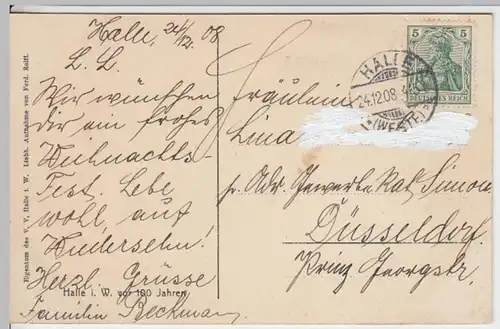 Halle, 24/12. 08
L. L.
Wir wünschen
dir ein frohes
Weihnachts-
Fest. Lebe
wohl, auf
Wiedersehn!
Herzl. Grüsse
Familie Beckmann
Halle i. W. vor 100 Jahren
Eigentum des V. V. Halle i. W. Liebh. Aufnahme von Ferd.
5 5
DEUTSCHES REICH
HALLE
24.12.08
(WESTF.)
Fräulein
Lina
p. Adr. Gewerbe Rat Simon
Düsseldorf.
Prinz Georgstr.